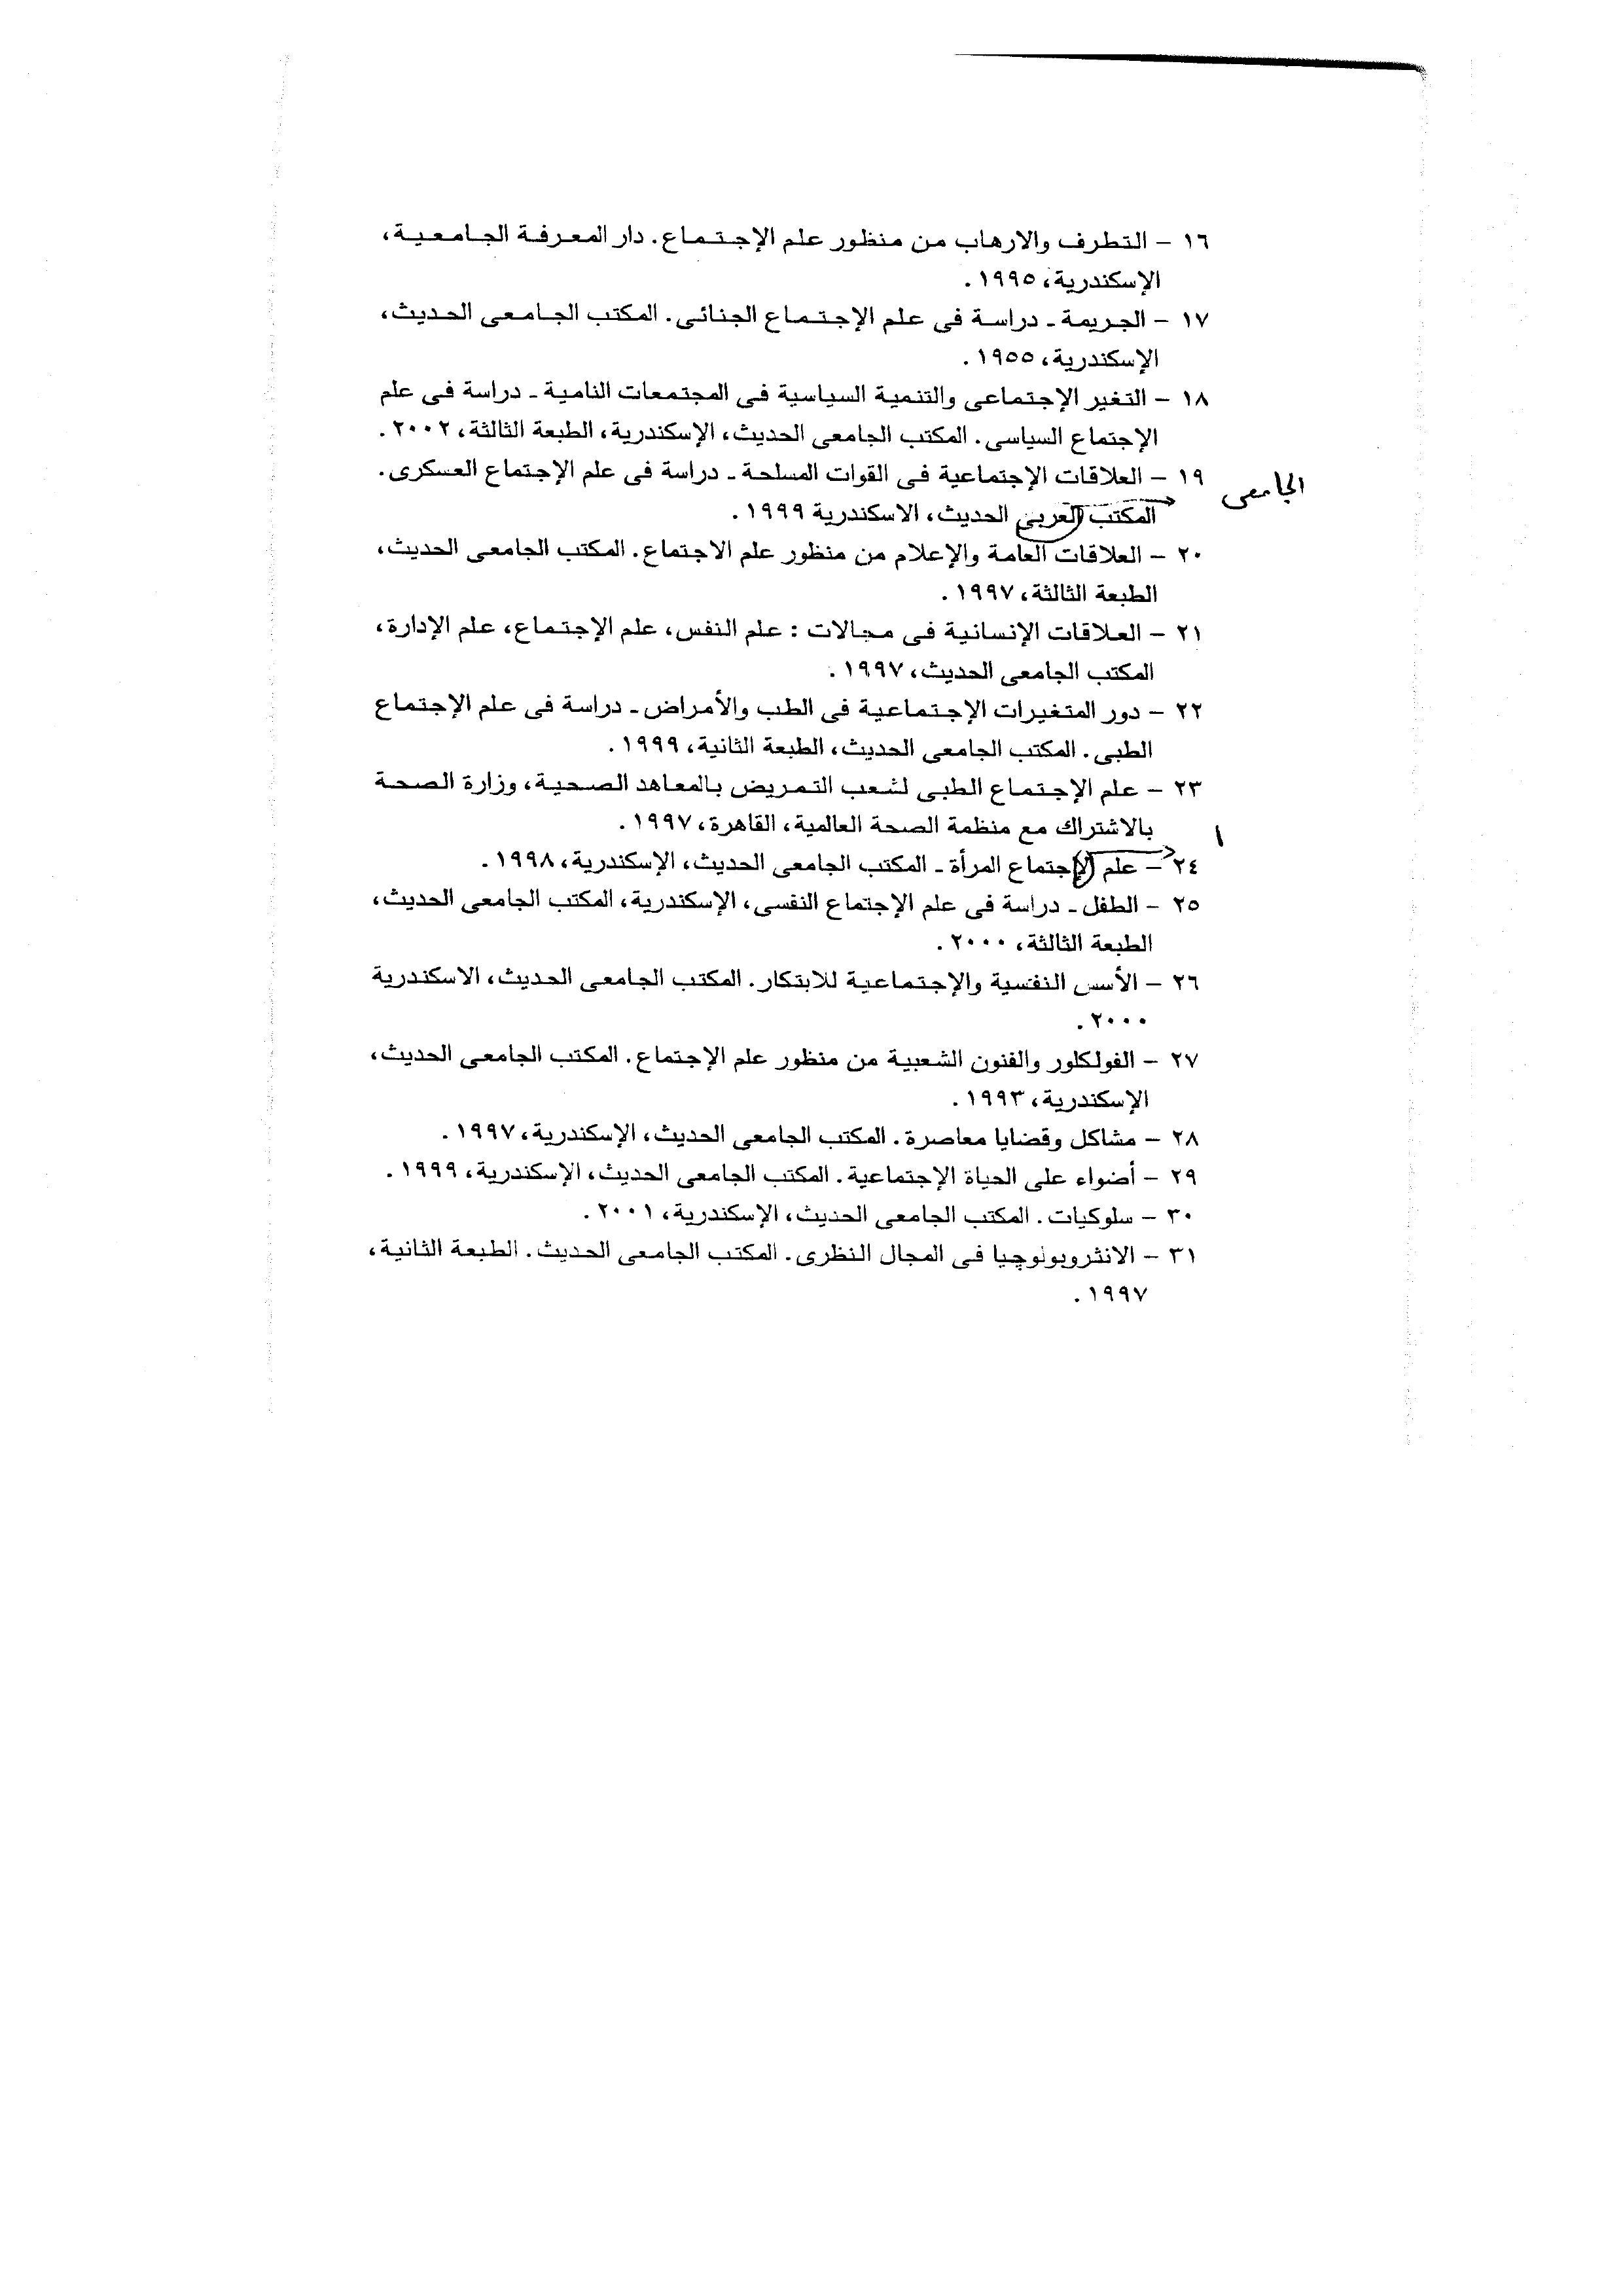 ١٦ – التطرف والارهاب من منظور علم الإجتماع. دار المعرفة الجامعية،
الإسكندرية، ١٩٩٥.
١٧ – الجريمة ـ دراسة فى علم الإجتماع الجنائى. المكتب الجامعى الحديث،
الإسكندرية، ١٩٥٥.
١٨ – التغير الإجتماعى والتنمية السياسية فى المجتمعات النامية ـ دراسة فى علم
الإجتماع السياسى. المكتب الجامعى الحديث، الإسكندرية، الطبعة الثالثة، ٢٠٠٢.
١٩ – العلاقات الإجتماعية فى القوات المسلحة ـ دراسة فى علم الإجتماع العسكرى.
الجامعى
المكتب العربى الحديث، الاسكندرية ١٩٩٩.
٢٠ – العلاقات العامة والإعلام من منظور علم الاجتماع. المكتب الجامعى الحديث،
الطبعة الثالثة، ١٩٩٧.
٢١ – العلاقات الإنسانية فى مجالات : علم النفس، علم الإجتماع، علم الإدارة،
المكتب الجامعى الحديث، ١٩٩٧.
٢٢ – دور المتغيرات الإجتماعية فى الطب والأمراض ـ دراسة فى علم الإجتماع
الطبى. المكتب الجامعى الحديث، الطبعة الثانية، ١٩٩٩.
٢٣ – علم الإجتماع الطبى لشعب التمريض بالمعاهد الصحية، وزارة الصحة
بالاشتراك مع منظمة الصحة العالمية، القاهرة، ١٩٩٧.
ا
٢٤ – علم الإجتماع المرأة ـ المكتب الجامعى الحديث، الإسكندرية، ١٩٩٨.
٢٥ – الطفل ـ دراسة فى علم الإجتماع النفسى، الإسكندرية، المكتب الجامعى الحديث،
الطبعة الثالثة، ٢٠٠٠.
٢٦ – الأسس النفسية والإجتماعية للابتكار. المكتب الجامعى الحديث، الاسكندرية
٢٠٠٠.
٢٧ – الفولكلور والفنون الشعبية من منظور علم الإجتماع. المكتب الجامعى الحديث،
الإسكندرية، ١٩٩٣.
٢٨ – مشاكل وقضايا معاصرة. المكتب الجامعى الحديث، الإسكندرية، ١٩٩٧.
٢٩ – أضواء على الحياة الإجتماعية. المكتب الجامعى الحديث، الإسكندرية، ١٩٩٩.
٣٠ – سلوكيات. المكتب الجامعى الحديث، الإسكندرية، ٢٠٠١.
٣١ – الانثروبولوچيا فى المجال النظرى. المكتب الجامعى الحديث. الطبعة الثانية،
١٩٩٧.